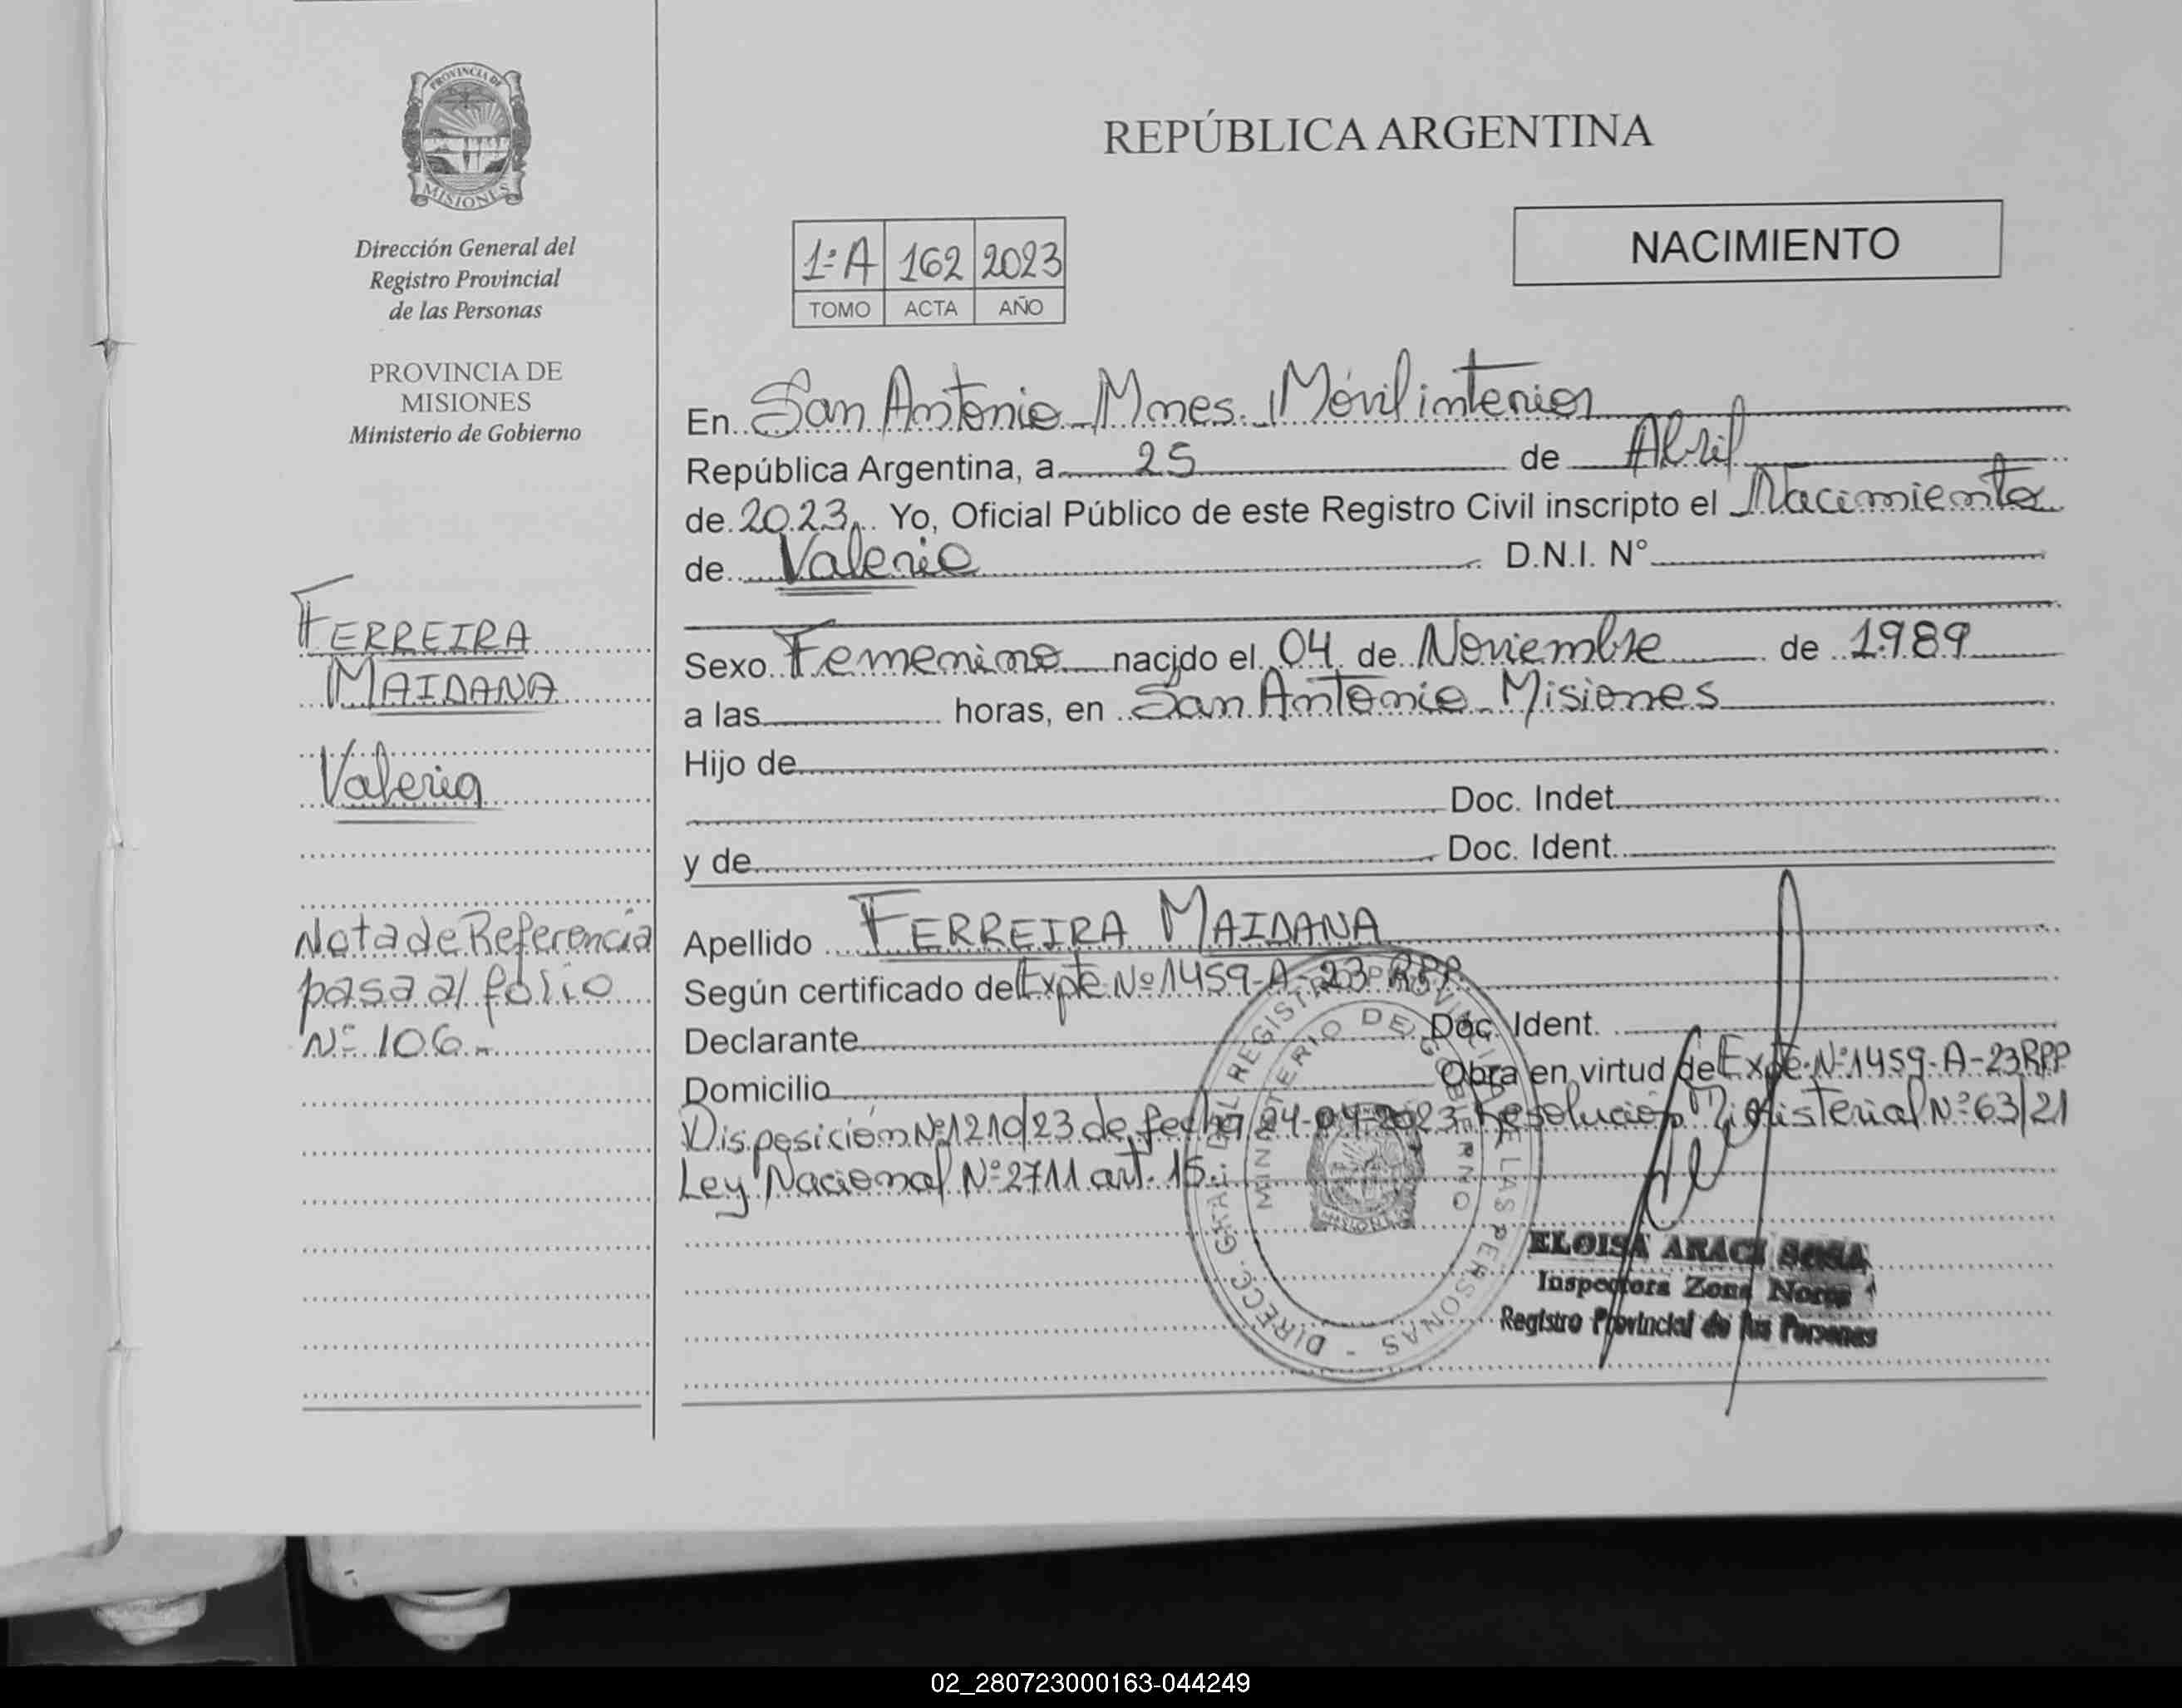 PROVINCIA DE
MISIONES
Dirección General del
Registro Provincial
de las Personas
PROVINCIA DE
MISIONES
Ministerio de Gobierno
FERREIRA
MAIDANA
Valeria
Nota de Referencia
pasa al folio
Nº 106.-
REPÚBLICA ARGENTINA
NACIMIENTO
1ºA 162 2023
TOMO ACTA AÑO
En San Antonio - Mnes. Móvil interior
República Argentina, a 25 de Abril
de 2023,. Yo, Oficial Público de este Registro Civil inscripto el Nacimiento
de Valeria D.N.I. N°
Sexo Femenino nacido el 04 de Noviembre de 1989
a las horas, en San Antonio - Misiones
Hijo de
Doc. Indet.
y de Doc. Ident.
Apellido FERREIRA MAIDANA
Según certificado de Expte Nº 1459-A-23 RPP.
Declarante Doc. Ident.
Domicilio Obra en virtud de Expte. Nº 1459-A-23 RPP
Disposición Nº 1210/23 de fecha 24-04-2023 Resolución Ministerial Nº 63/21
Ley Nacional Nº 2711 art. 15.
DIRECC. GRAL. DEL REGISTRO PROVINCIAL DE LAS PERSONAS -
MINISTERIO DE GOBIERNO
MISIONES
ELOISA ARACI SOSA
Inspectora Zona Norte
Registro Provincial de las Personas
02_280723000163-044249